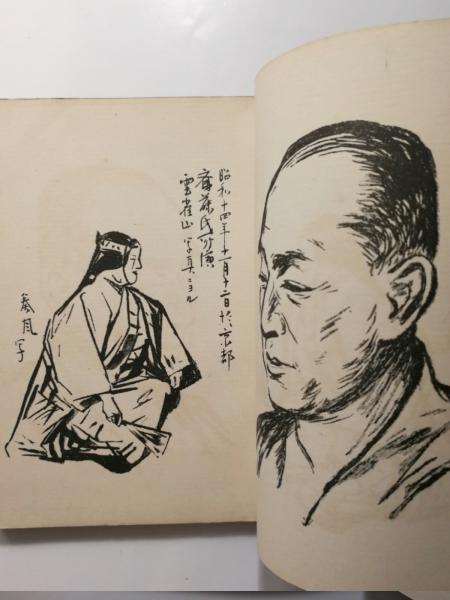 昭和十四年十一月十二日於京都
齋藤氏所演
雲雀山 写真ニヨル
写